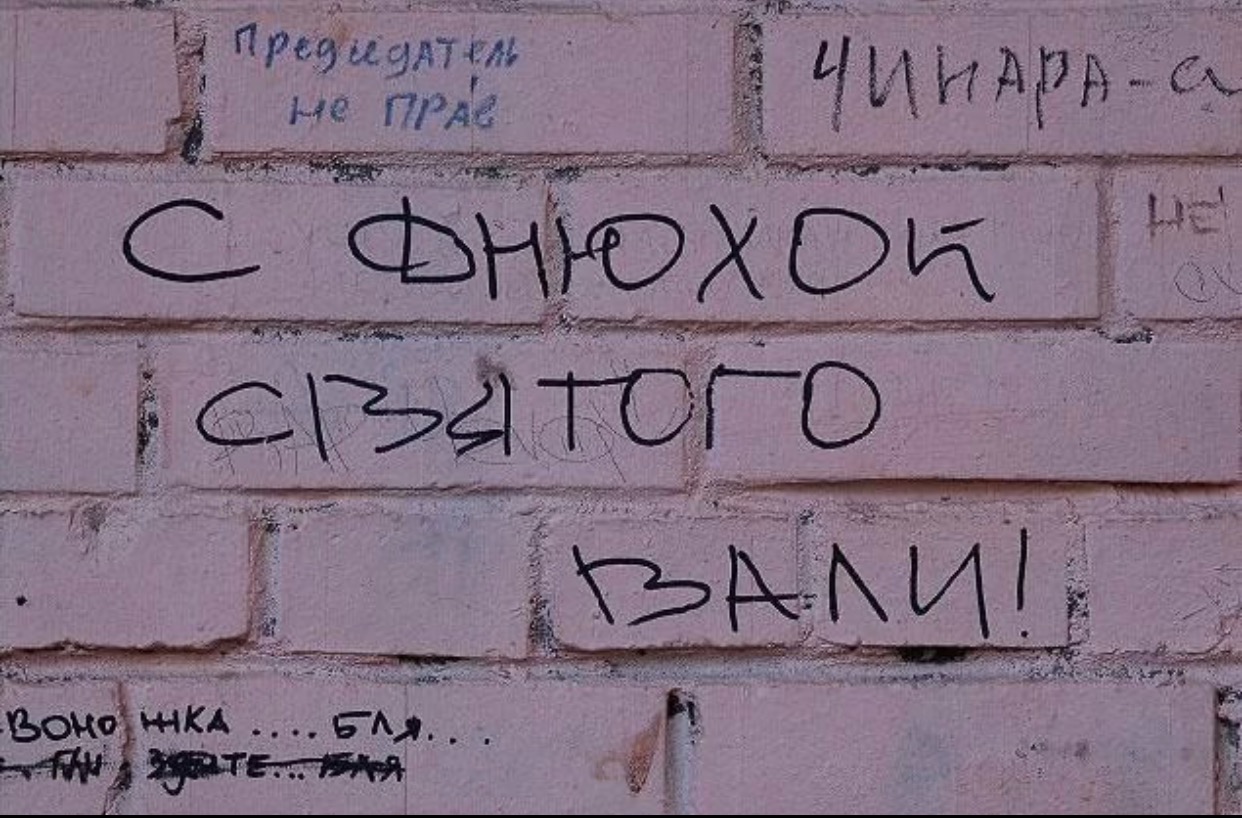 Предидатель
не ПРАв
ЧИНАРА-а
С ФНЮХОЙ
СВЯТОГО
ВАЛИ!
НЕ
ВОНОЖКА .... БЛЯ...